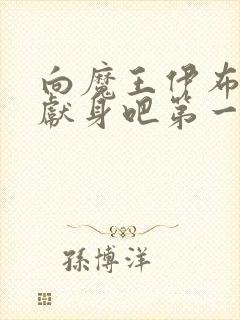 向魔王伊布
獻身吧第一
孫博洋